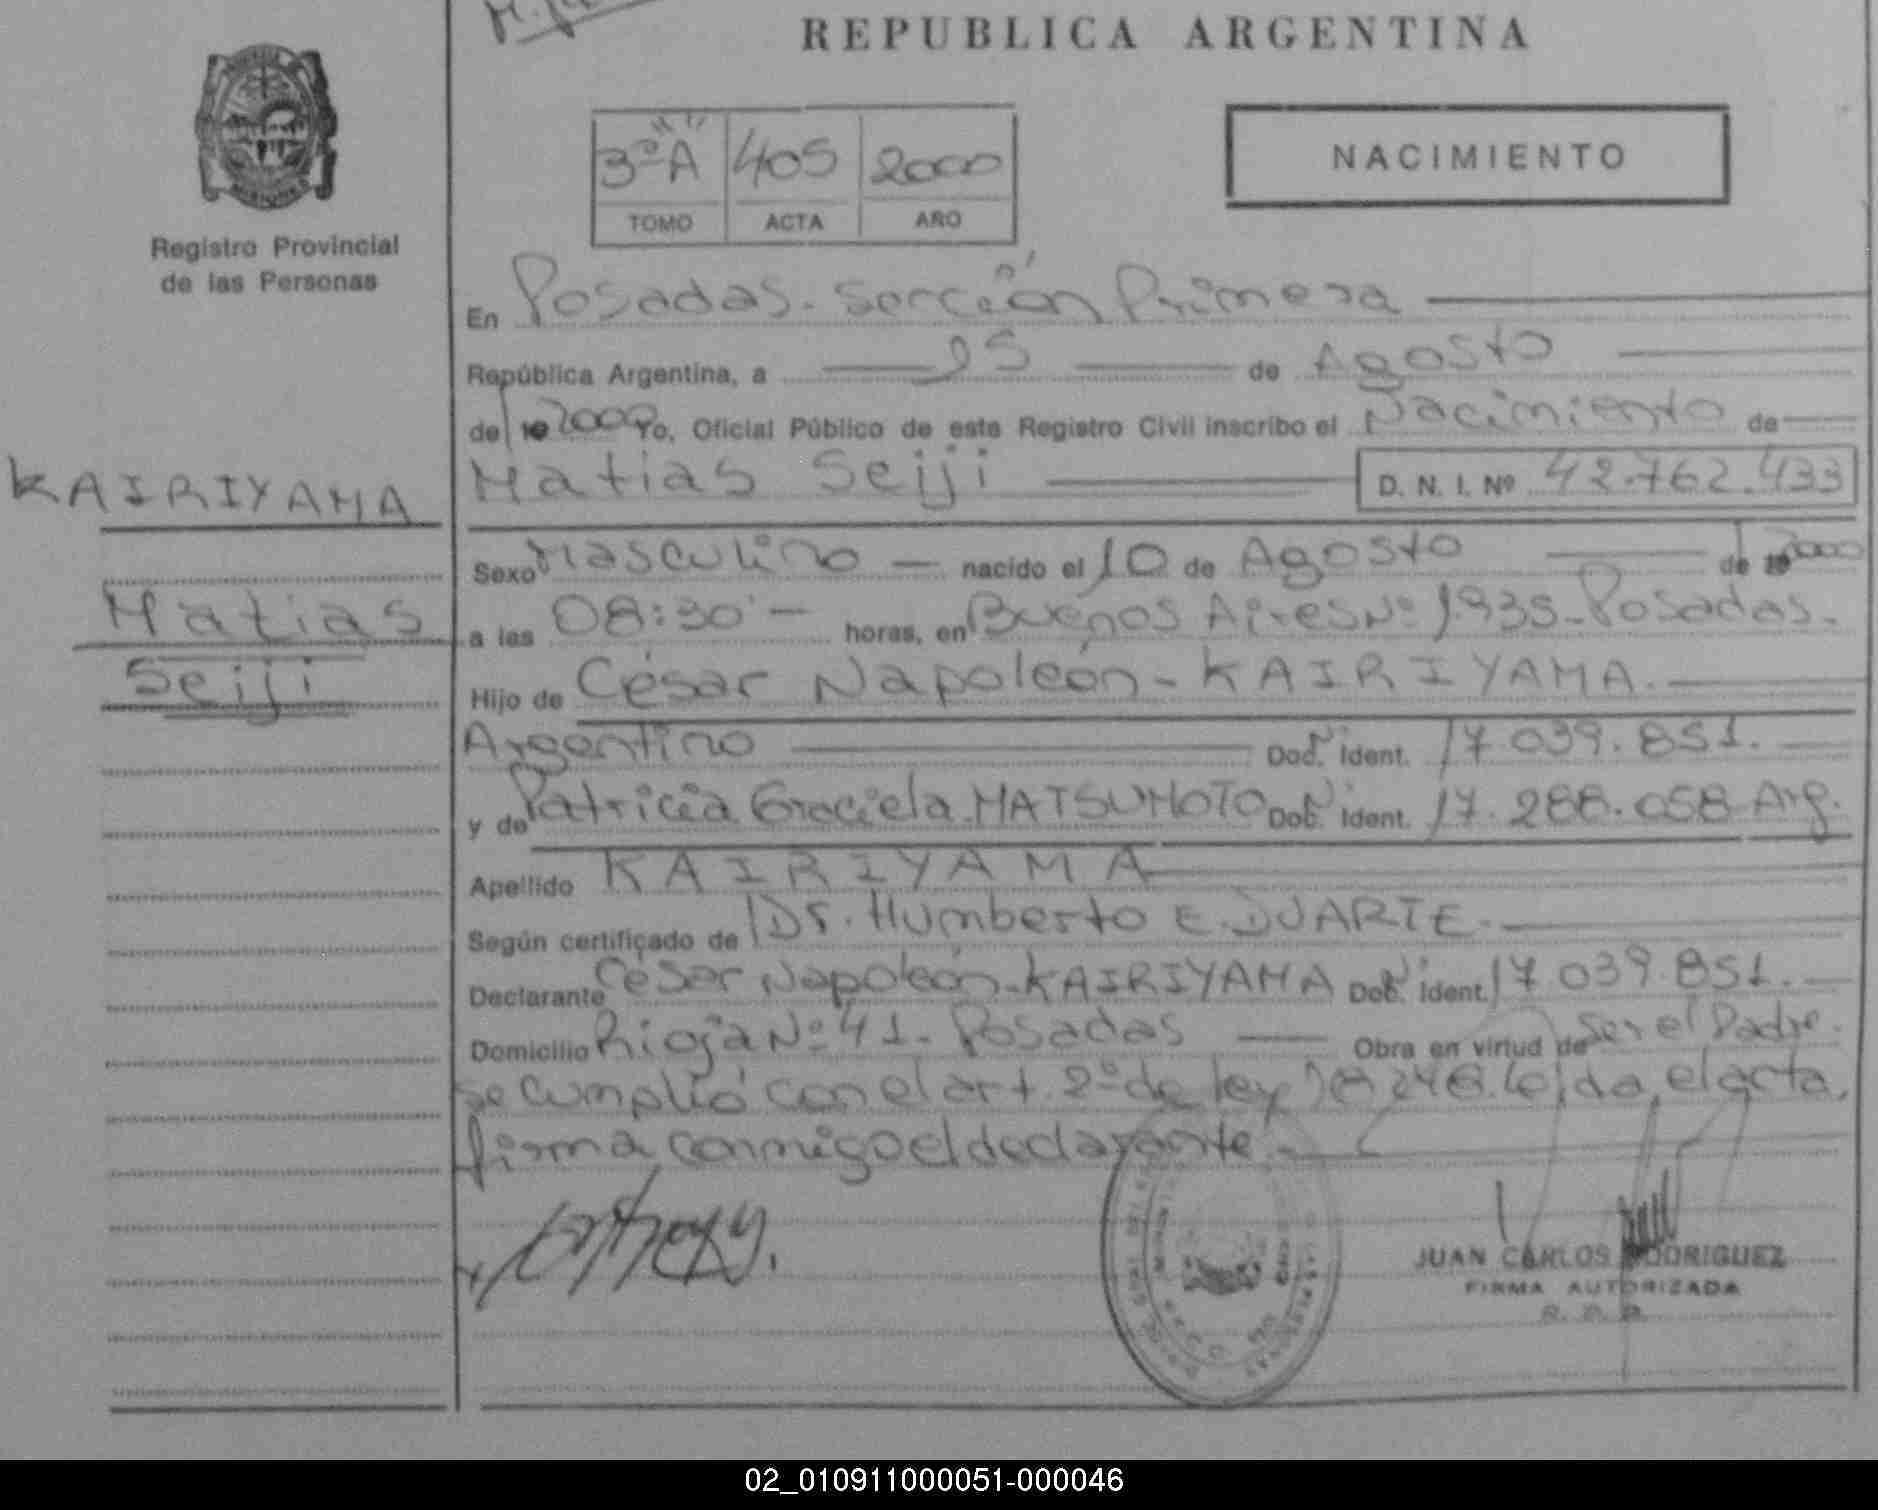 REPUBLICA ARGENTINA
3ºA 405 2000
TOMO ACTA AÑO
NACIMIENTO
Registro Provincial
de las Personas
En Posadas. Sección Primera
República Argentina, a 25 de Agosto
de 2000 Yo, Oficial Público de este Registro Civil inscribo el Nacimiento de
KAIRIYAMA
Matias Seiji D. N. I. Nº 42.762.433
Sexo Masculino nacido el 10 de Agosto de 2000
Matias
Seiji
a las 08:30 horas, en Buenos Aires Nº 1.935-Posadas.
Hijo de César Napoleón-KAIRIYAMA.
Argentino Doc. Ident. 17.039.851.
y de Patricia Graciela.MATSUMOTO Doc. Ident. 17.288.058 Arg.
Apellido KAIRIYAMA
Según certificado de Dr. Humberto E. DUARTE.
Declarante César Napoleón-KAIRIYAMA Doc. Ident. 17.039.851.
Domicilio Rioja Nº 41- Posadas Obra en virtud de ser el Padre.
se cumplió con el art. 2º de ley 18.248. leída el acta,
firma conmigo el declarante.
JUAN CARLOS RODRIGUEZ
FIRMA AUTORIZADA
02_010911000051-000046